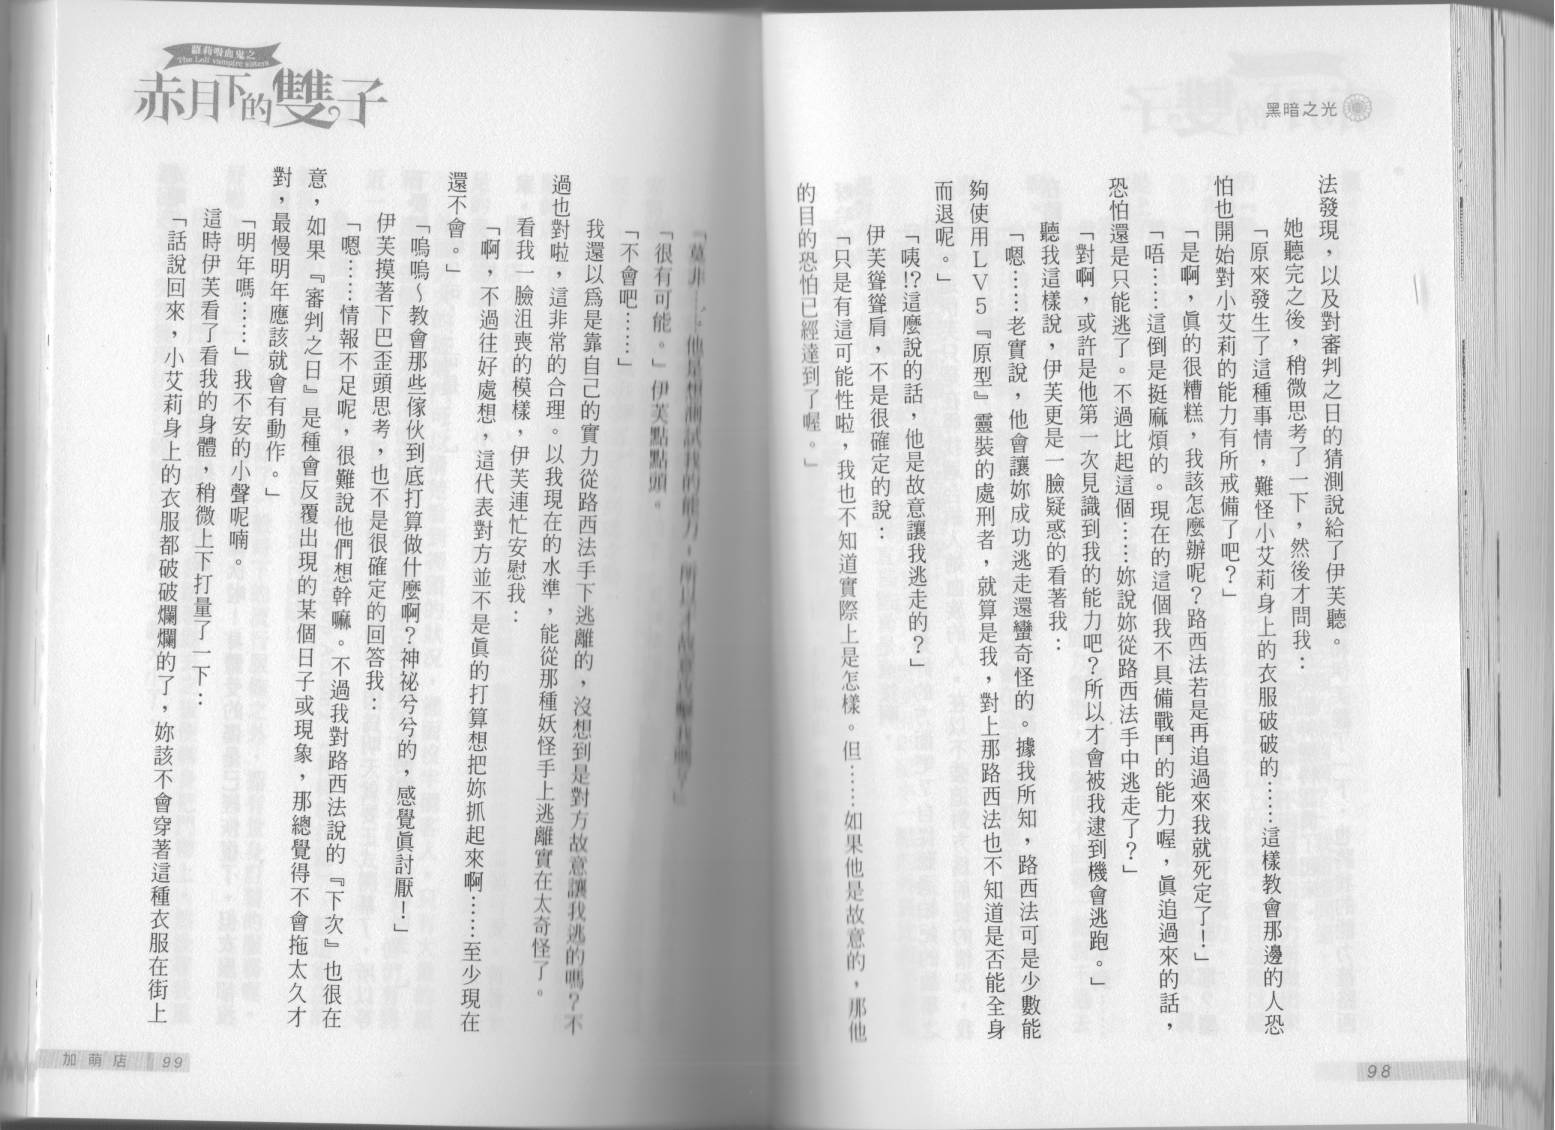 黑暗之光
法發現，以及對審判之日的猜測說給了伊芙聽。
她聽完之後，稍微思考了一下，然後才問我：
「原來發生了這種事情，難怪小艾莉身上的衣服破破的……這樣教會那邊的人恐
怕也開始對小艾莉的能力有所戒備了吧？」
「是啊，真的很糟糕，我該怎麼辦呢？路西法若是再追過來我就死定了！」
「唔……這倒是挺麻煩的。現在的這個我不具備戰鬥的能力喔，真追過來的話，
恐怕還是只能逃了。不過比起這個……妳說妳從路西法手中逃走了？」
「對啊，或許是他第一次見識到我的能力吧？所以才會被我逮到機會逃跑。」
聽我這樣說，伊芙更是一臉疑惑的看著我：
「嗯……老實說，他會讓妳成功逃走還蠻奇怪的。據我所知，路西法可是少數能
夠使用LV5『原型』靈裝的處刑者，就算是我，對上那路西法也不知道是否能全身
而退呢。」
「咦!?這麼說的話，他是故意讓我逃走的？」
伊芙聳聳肩，不是很確定的說：
「只是有這可能性啦，我也不知道實際上是怎樣。但……如果他是故意的，那他
的目的恐怕已經達到了喔。」
98
蘿莉吸血鬼之
The Loli vampire sisters
赤月下的雙子
「莫非……他是想測試我的能力，所以才故意
「很有可能。」伊芙點點頭。
「不會吧……」
我還以為是靠自己的實力從路西法手下逃離的，沒想到是對方故意讓我逃的嗎？不
過也對啦，這非常的合理。以我現在的水準，能從那種妖怪手上逃離實在太奇怪了。
看我一臉沮喪的模樣，伊芙連忙安慰我：
「啊，不過往好處想，這代表對方並不是真的打算想把妳抓起來啊……至少現在
還不會。」
「嗚嗚～教會那些傢伙到底打算做什麼啊？神祕兮兮的，感覺真討厭！」
伊芙摸著下巴歪頭思考，也不是很確定的回答我：
「嗯……情報不足呢，很難說他們想幹嘛。不過我對路西法說的『下次』也很在
意，如果『審判之日』是種會反覆出現的某個日子或現象，那總覺得不會拖太久才
對，最慢明年應該就會有動作。」
「明年嗎……」我不安的小聲呢喃。
這時伊芙看了看我的身體，稍微上下打量了一下：
「話說回來，小艾莉身上的衣服都破破爛爛的了，妳該不會穿著這種衣服在街上
加萌店 99